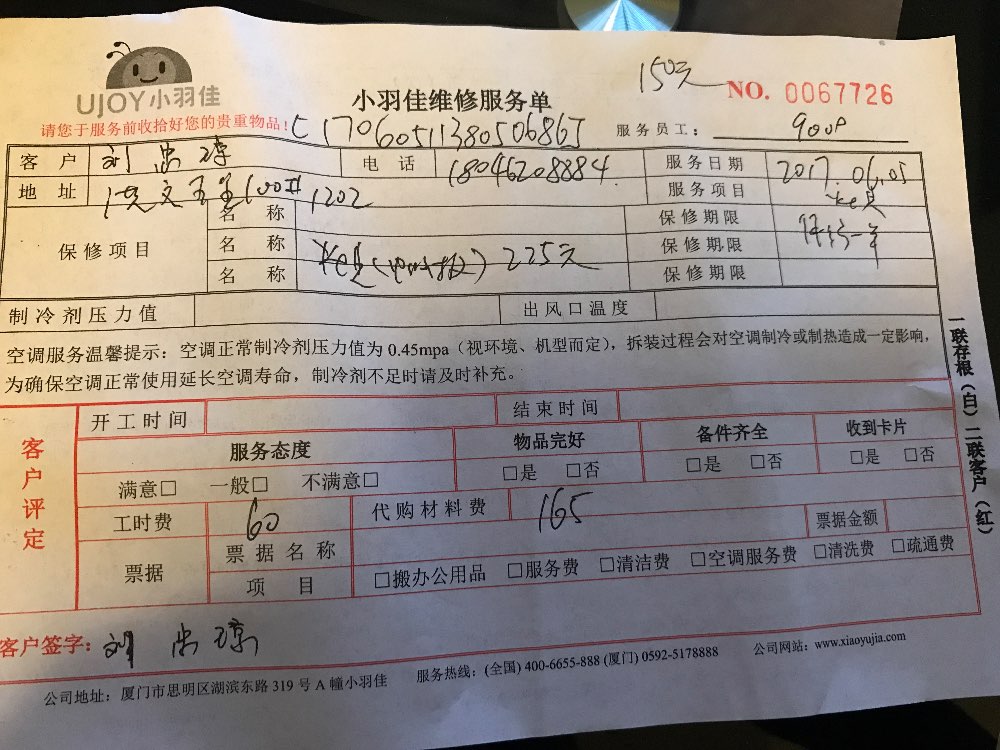 UJOY小羽佳
150元
NO. 0067726
小羽佳维修服务单
请您于服务前收拾好您的贵重物品!
服务员工:
客户 刘 电话 18046208884 服务日期 2017.06.05
地址 1202 服务项目
保修项目
名称 保修期限
名称 225元 保修期限
名称 保修期限
制冷剂压力值 出风口温度
空调服务温馨提示：空调正常制冷剂压力值为 0.45mpa（视环境、机型而定），拆装过程会对空调制冷或制热造成一定影响，
为确保空调正常使用延长空调寿命，制冷剂不足时请及时补充。
一联存根（白）二联客户（红）
客户评定
开工时间 结束时间
服务态度 物品完好 备件齐全 收到卡片
满意□ 一般□ 不满意□ □是 □否 □是 □否 □是 □否
工时费 60 代购材料费 165 票据金额
票据 票据名称
项目 □搬办公用品 □服务费 □清洁费 □空调服务费 □清洗费 □疏通费
客户签字: 刘
公司地址：厦门市思明区湖滨东路 319 号 A 幢小羽佳 服务热线：(全国) 400-6655-888 (厦门) 0592-5178888 公司网站：www.xiaoyujia.com